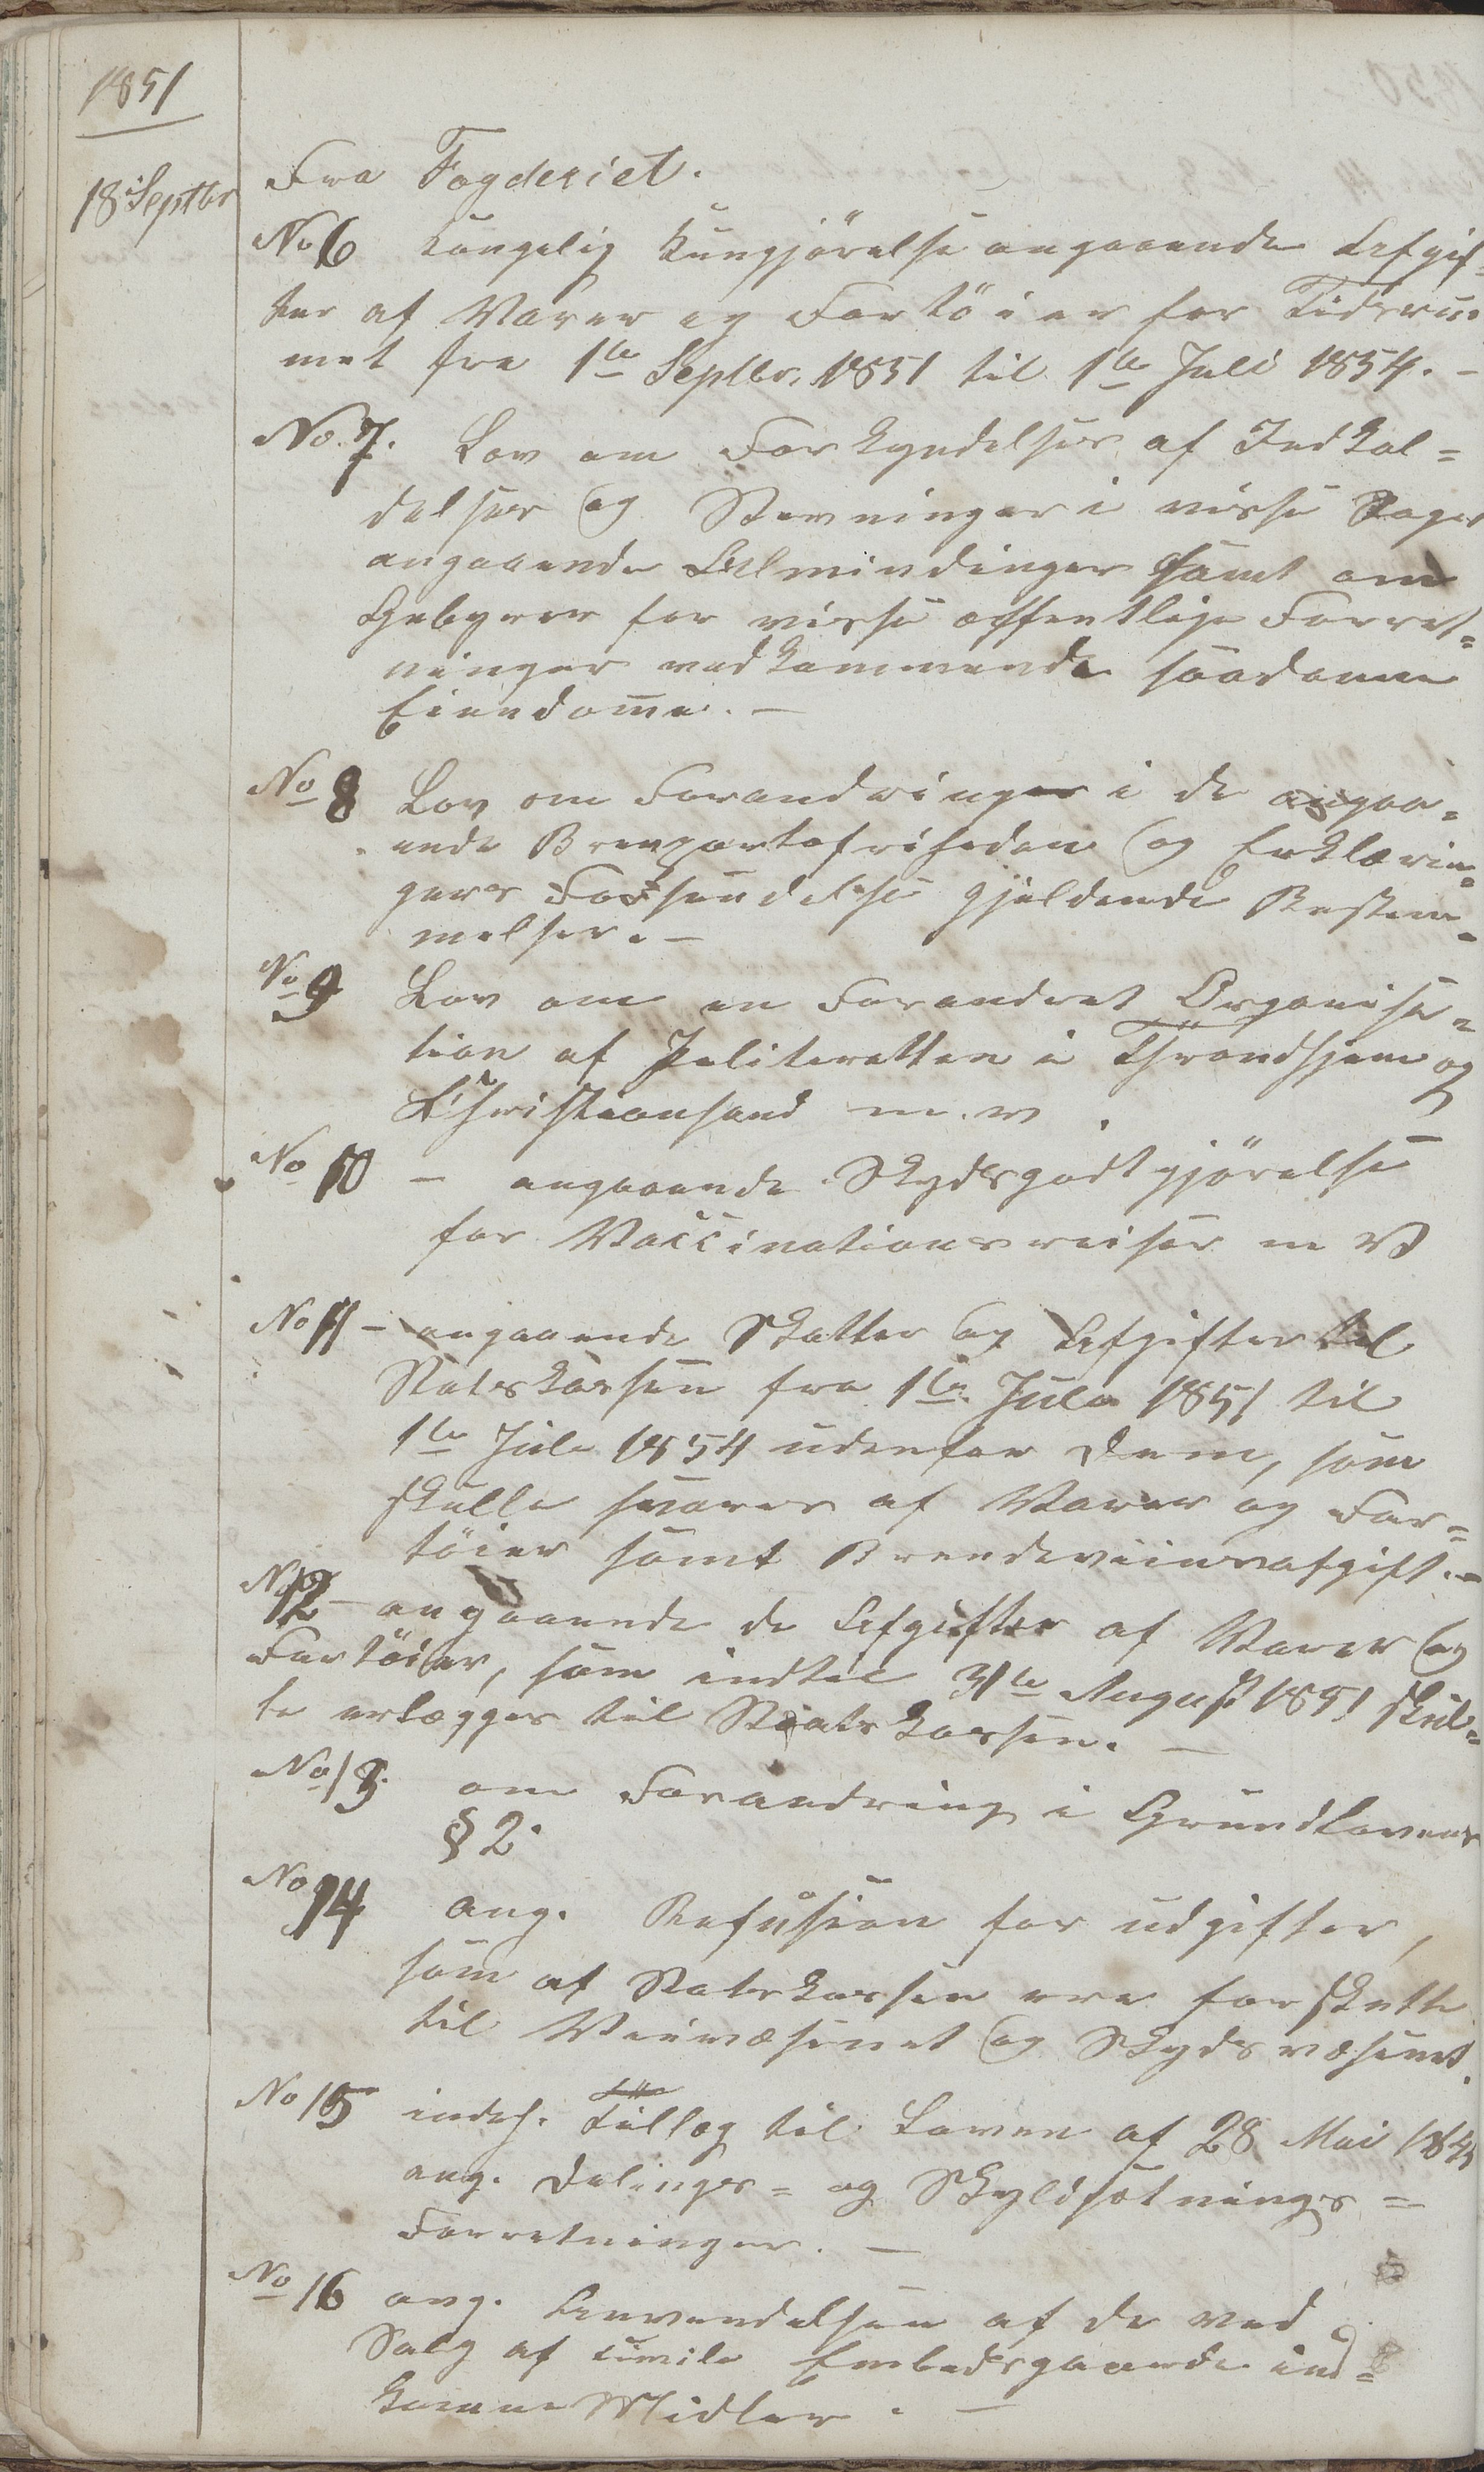 1851
18 Septbr
Fra Fogderiet.
No 6 kongelig Kungjörelse angaaende Afgif=
ter af Varer og Fartöier for Tidsru-
met fra 1te Septbr. 1851 til 1te Juli 1854. -
No. 7. Lov om Forkyndelser af Indkal=
delser og Stevninger i visse Sager
angaaende Almindinger samt om
Gebyrer for visse offentlige Forret=
ninger vedkommende saadanne
Eiendome. -
No 8 Lov om Forandringer i de angaa=
ende Brevportofriheden og Erklærin=
gers Forsendelse gjeldende Bestem=
melser. -
No 9 Lov om en Forandret Organisa=
tion af Politeretten i Throndhjem og
Christiansand m. v.
No 10 - angaaende Skydsgodtgjörelse
for Vaccinationsreiser m V
No 11 - angaaende Skatter og Afgifter til
Statskassen fra 1te Jule 1851 til
1te Jule 1854 udenfor Dem, som
skulle svares af Varer og Far=
töier samt Brendeviinsafgift. -
No 12 - angaaende de Afgifter af Varer og
Fartöier, som indtil 31te August 1851 skul=
le erlægges til Statskassen. -
No 13. om Forandring i Grundlovens
§ 2.
No 14 ang. Refusion for udgifter,
som af Statskassen ere forskutte
til Veivæsenet og Skydsvæsenet.
No 15 indeh. Tillæg til Loven af 28 Mai 1845
ang. Delings= og Skyldsætnings=
Forretninger. -
No 16 ang. Anvendelsen af de ved
Salg af civile Embedsgaarde ind=
komne Midler. -